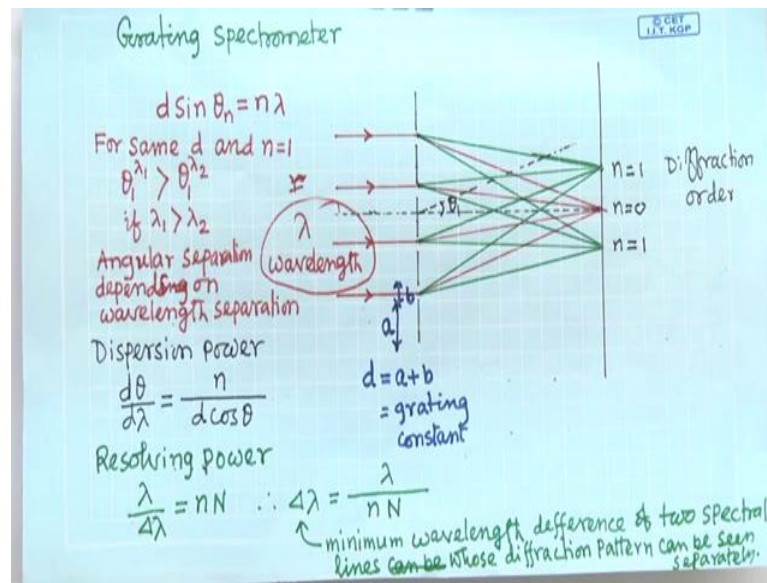 Grating spectrometer
© CET
I.I.T. KGP
d sin θₙ = nλ
For same d and n=1
θ₁^λ₁ > θ₁^λ₂
if λ₁ > λ₂
Angular separation
depending on
wavelength separation
λ
wavelength
θ₁
n=1
n=0
n=1
Diffraction
order
b
a
d = a+b
= grating
constant
Dispersion power
dθ/dλ = n/(d cosθ)
Resolving power
λ/Δλ = nN ∴ Δλ = λ/(nN)
minimum wavelength difference of two spectral
lines can be whose diffraction pattern can be seen
separately.